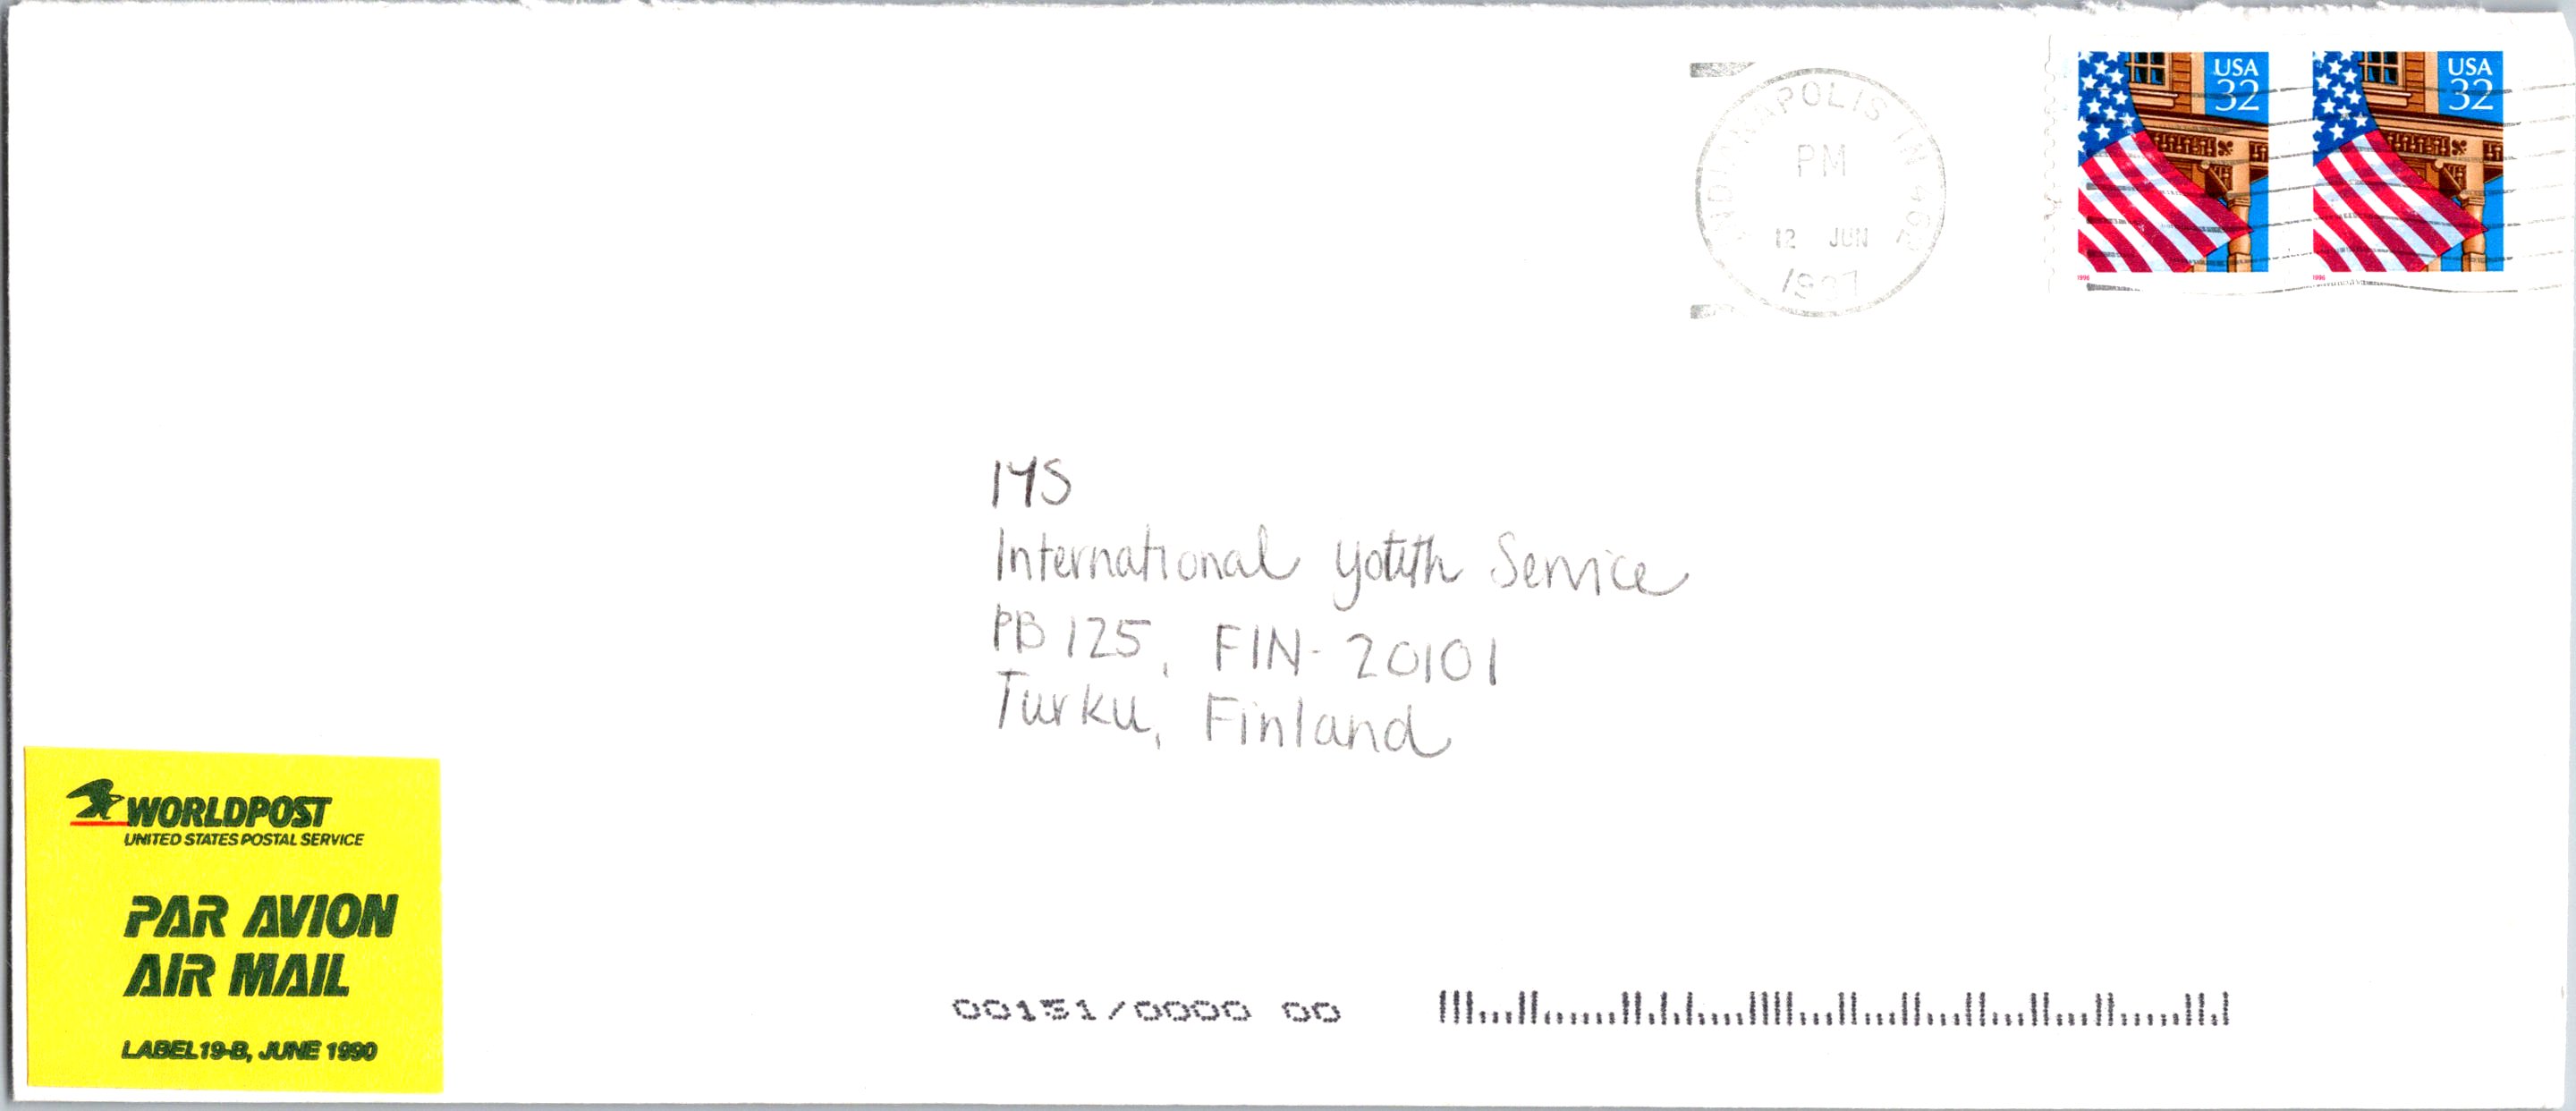 INDIANAPOLIS IN 462
PM
12 JUN
1997
USA
32
USA
32
1996
1996
IYS
International Youth Service
PB 125, FIN-20101
Turku, Finland
WORLDPOST
UNITED STATES POSTAL SERVICE
PAR AVION
AIR MAIL
LABEL 19-B, JUNE 1990
00151/0000 00